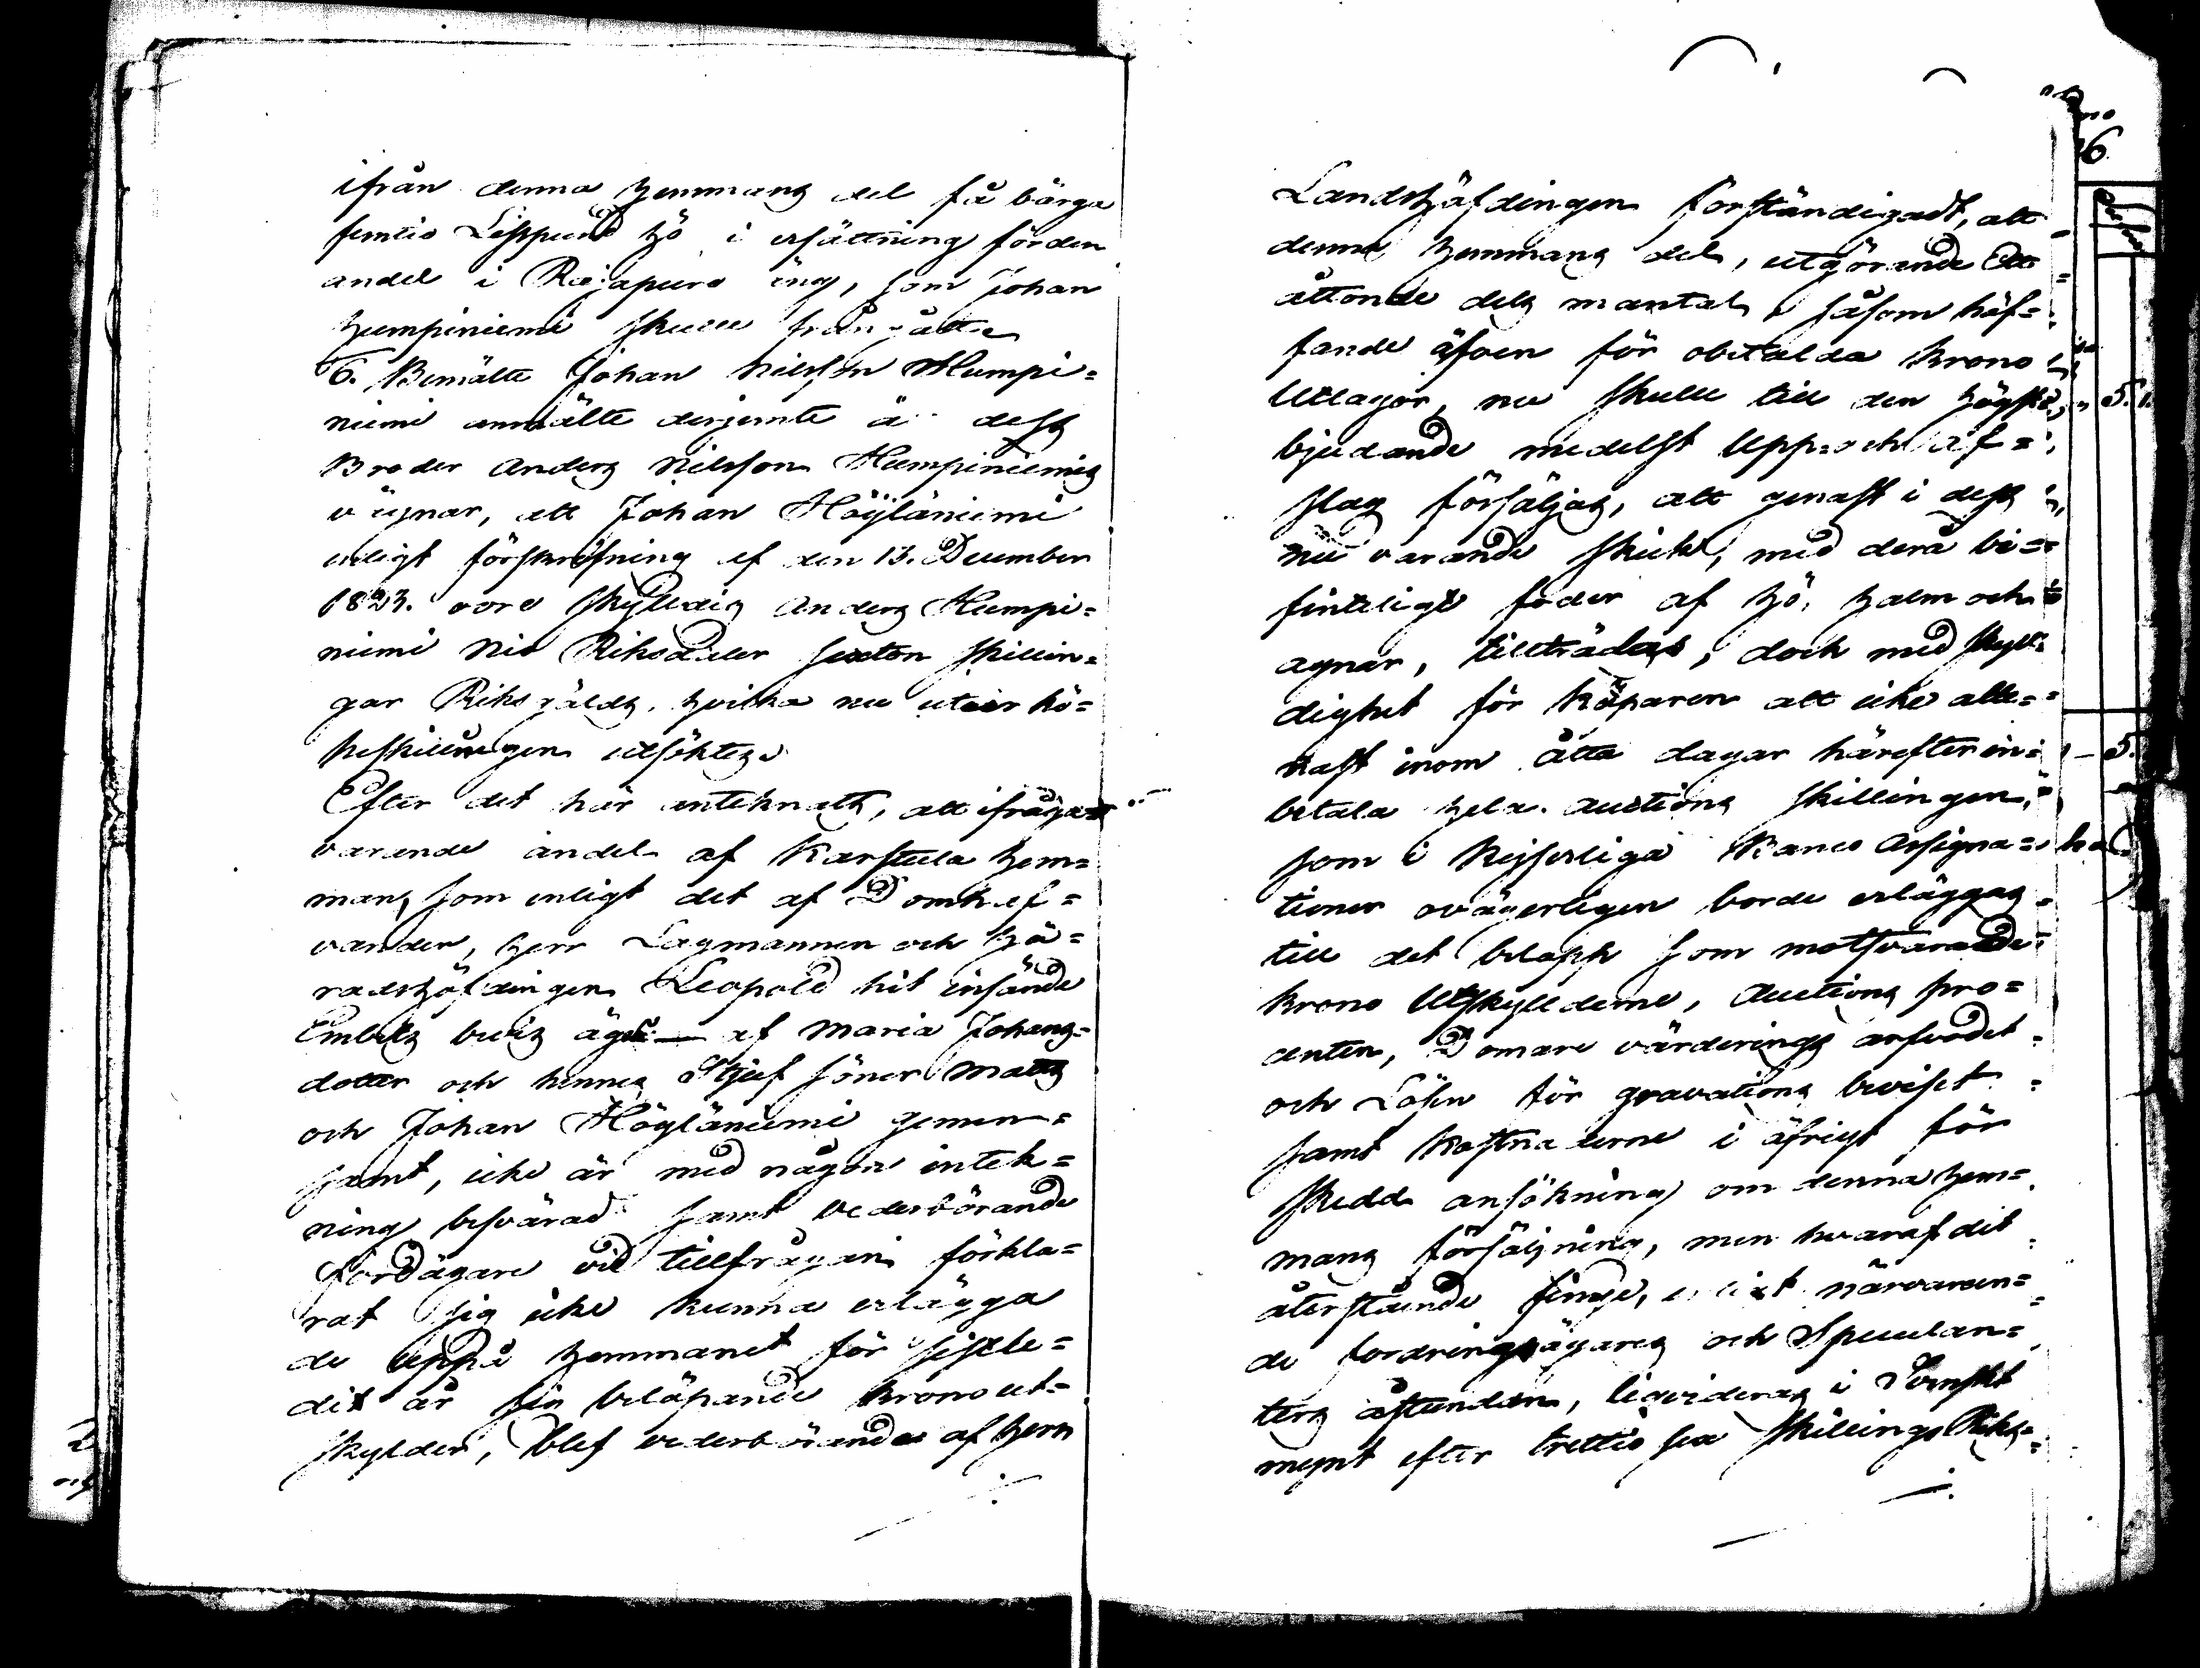 ifrån denna hemmans del få bärga
femtio Lispund hö i ersättning för den
andel i Rajapuro äng, som Johan
Humpiniemi skulle frångåtta
6. Bemälte Johan Nilsson Humpi=
niemi anmälte derjemte å dess
Broder Anders Nilsson Humpiniemis
vägnar, att Johan Höyläniemi
enligt förskrifning af den 13. December
1823. vore skyldig Anders Humpi=
niemi Nio Riksdaler sexton skillin=
gar Riksgälds, hvilka nu utur kö=
peskillingen utsöktes.
Efter det här anteknats, att ifråga=
varande andel af Karstula hem=
man, som enligt det af Domhaf=
vanden, herr Lagmannen och hä=
radshöfdingen Leopold hit insände
Embets bevis äges af Maria Johans=
dotter och hennes Stjuf söner Matts
och Johan Höyläniemi gemen=
samt, icke är med någon intek=
ning besvärad samt vederbörande
jordägare vid tillfrågan förkla=
rat sig icke kunna erlägga
de uppå hemmanet för sistle=
dit år sin belöpande krono ut=
skylder, blef vederbörande af herr
Landshöfdingen förständigadt, att
denna hemmans del, utgörande Ett
åttonde dels mantal, såsom häf=
tande äfven för obetalda Krono
Utlagor, nu skulle till den högst
bjudande medelst Upp= och af=
slag försäljas, att genast i dess
nu varande skick, med derå be=
fintligt foder af hö, halm och
agnar, tillträdas, doch med skyl=
dighet för köparen att icke alle=
nast inom åtta dagar härefter in=
betala hela auctions skillingen,
som i Kejserliga Banco Assigna=
tioner ovägerligen borde erläggas
till det belopp som motsvarade
krono Utskylderne, Auctions pro=
centen, Domare värderings arfvodet
och Lösen för gravations beviset
samt kostnaderne i öfrigt för
skedd ansökning om denna hem=
mans försäljning, men hvaraf det
återstående finge, enligt närvaran=
de fordringsägares och Speculan=
ters åstundan, liqvideras i Svenskt
mynt efter trettio sex skillings Riks=